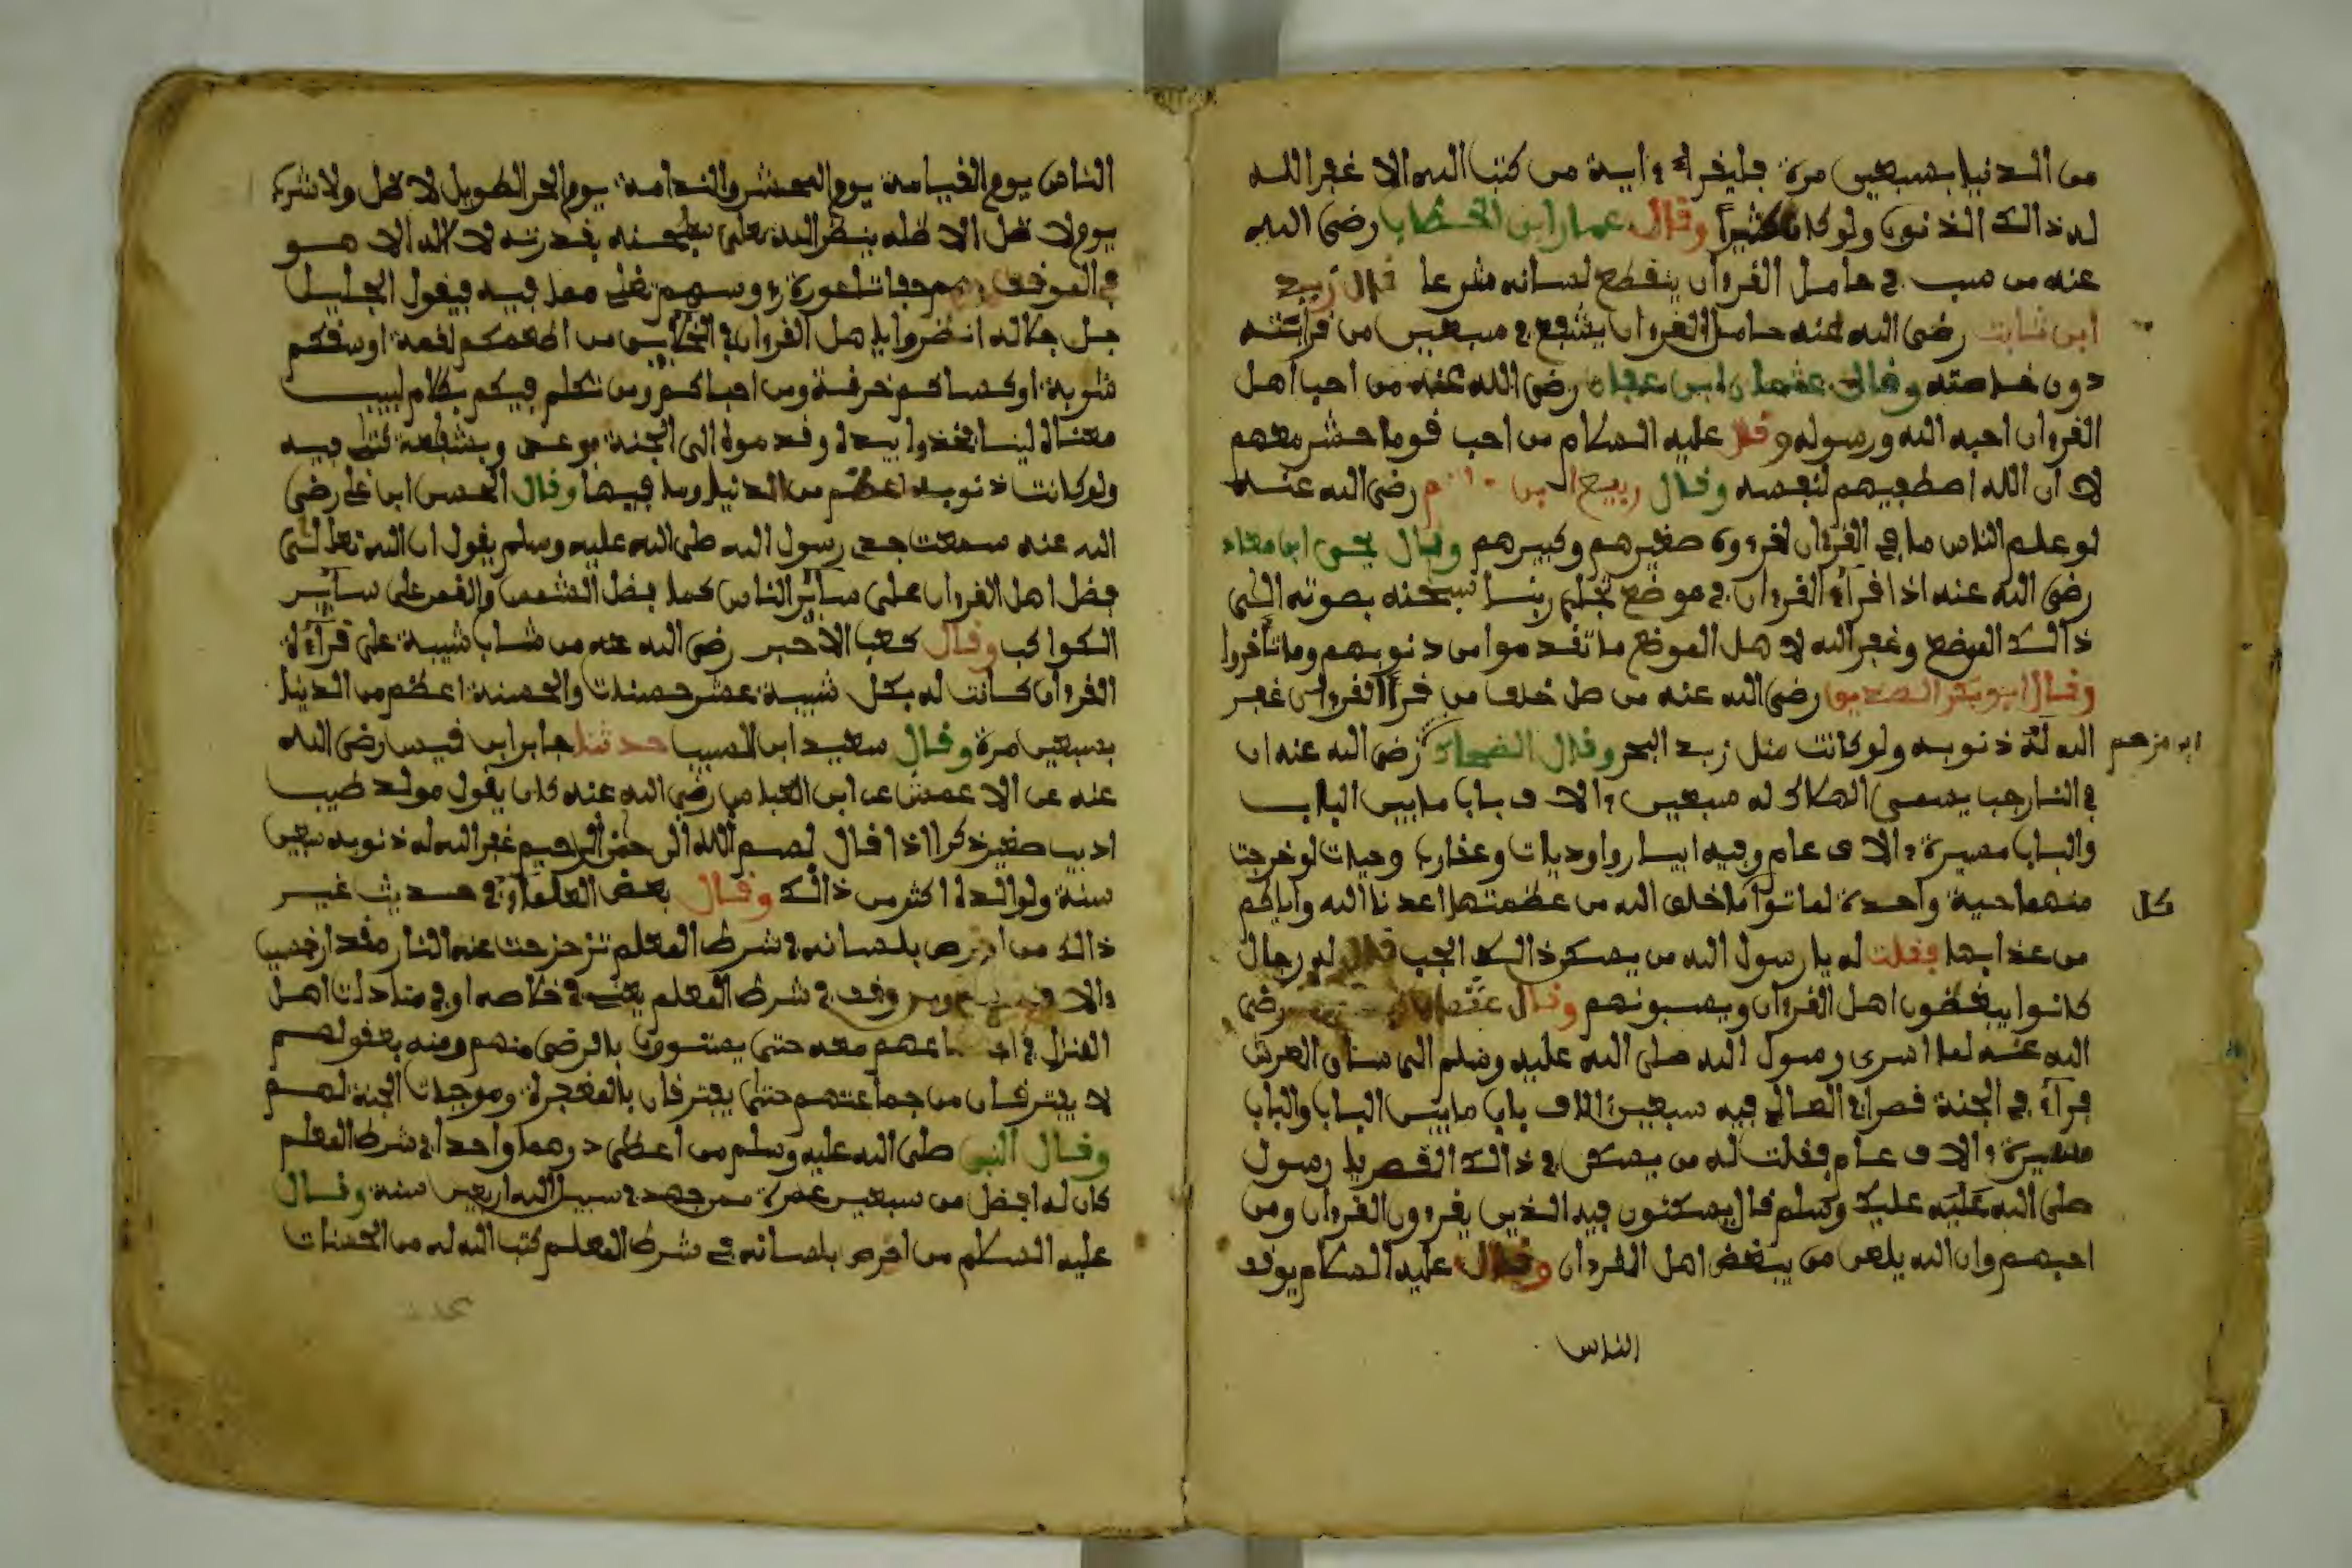 من الدنيا بسبعين مرة فليقرأ ءاية من كتب الله الا غفر الله
له ذالك الذنوب ولو كان كثيرا وقال عمار ابن الخطاب رضى الله
عنه من سب في حامل القرءان ينقطع لسانه شرعا قال زيد
ابن ثابت رضى الله عنه حامل القرءان يشفع في سبعين من قرابته
دون خاصته وقال عثمان ابن عفان رضى الله عنه من احب أهل
القرءان احبه الله ورسوله وقال عليه السلام من احب قوما حشر معهم
لان الله اصطفيهم لنفسه وقال ربيع رضى الله عنه
لو علم الناس ما في القرءان لقرءوه صغيرهم وكبيرهم وقال يحى ابن معاذ
رضى الله عنه اذا قرأ القرءان في موضع تجلى ربنا سبحنه بصوته الى
ذالك الموضع وغفر الله لاهل الموضع ما تقدموا من ذنوبهم وما تأخروا
وقال ابو بكر الصديق رضى الله عنه من صل خلف من قرأ القرءان غفر
الله له ذنوبه ولو كانت مثل زبد البحر وقال الضحاك رضى الله عنه ان
ابن مزهم
في النار جب يسمى الهلاك له سبعين ءالاف بابا ما بين الباب
والباب مسيرة ءالاف عام وفيه ابيار واوديات وعقارب وحيات لو خرجت
منهما حية واحدة لماتوا ما خلق الله من عظمتها اعدنا الله واياكم
كل
من عذابها فقلت له يا رسول الله من يسكن ذالك الجب قال له رجال
كانوا يبغضون اهل القرءان ويسبونهم وقال رضى
الله عنه لما اسرى رسول الله صلى الله عليه وسلم الى ساق العرش
قرأ في الجنة قصرا في العالى فيه سبعين ءالاف باب ما بين الباب والباب
مسيرة ءالاف عام فقلت له من يسكن في ذالك القصر يا رسول
صلى الله عليه عليك وسلم قال يسكنون فيه الذين يقرءون القرءان ومن
احبهم وان الله يلعن من يبغض اهل القرءان وقال عليه السلام يوقف
الناس
الناس يوم القيامة يوم المحشر والندامة يوم الحر الطويل لا ظل ولا شراب
يوم لا ظل الا ظله ينظر الله تعلى سبحنه بقدرته لا اله الا هو
في الموقف فيقول الجليل
جل جلاله انظروا يا هل القرءان في الخلايق من اطعمكم لقمة اوسقكم
شوبة او كساكم خرقة ومن احباكم ومن تكلم فيكم بكلام لبيب
فخذوا بيده وقدموه الى الجنة
ولو كانت ذنوبه اعظم من الدنيا وما فيها وقال الحسن ابن على رضى
الله عنه سمعت جدى رسول الله صلى الله عليه وسلم يقول ان الله تعلى
فضل اهل القرءان على سائر الناس كما فضل الشمس والقمر على سائر
الكواكب وقال كعب الاحبر رضى الله عنه من شاب شيبة على قرأة
القرءان كانت له بكل شيبة عشر حسنات والحسنة اعظم من الدنيا
بسبعين مرة وقال سعيد ابن المسيب حدثنا جابر ابن قيس رضى الله
عنه عن الاعمش عن ابن العباس رضى الله عنه كان يقول مولد طيب
اديب صغير ذكرا اذا قال بسم الله الرحمن الرحيم غفر الله له ذنوبه سبعين
سنة ولوالده اكثر من ذالك وقال بعض العلماء في حديث غير
ذالك من بلسانه في شرط المعلم تزحزحت عنه النار مقدار
وقف في شرط المعلم اهل
المنزل معه حتى بالرضى منهم ومنه بعفو لهم
لا يفترقان من جماعتهم حتى يفترقان بالمغفرة وموجبات الجنة لهم
وقال النبى صلى الله عليه وسلم من اعطى درهما واحدا في شرط المعلم
كان له افضل من سبعين عمرة ممن جهد في سبيل الله اربعين سنة وقال
عليه السلام من بلسانه في شرط المعلم كتب الله له من الحسنات